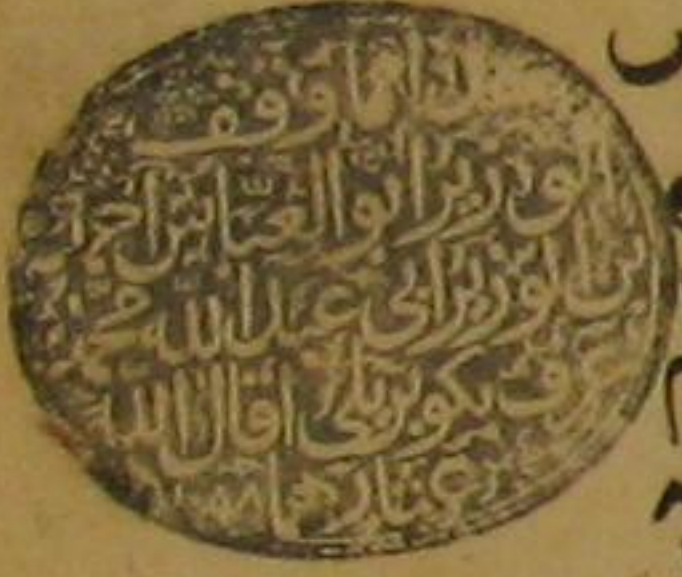 هذا ما وقف
الوزير ابو العبّاس احمد
بن الوزير ابي عبد الله محمد
عرف بكوبريلي اقال الله
عثارهما ١٠٨٨